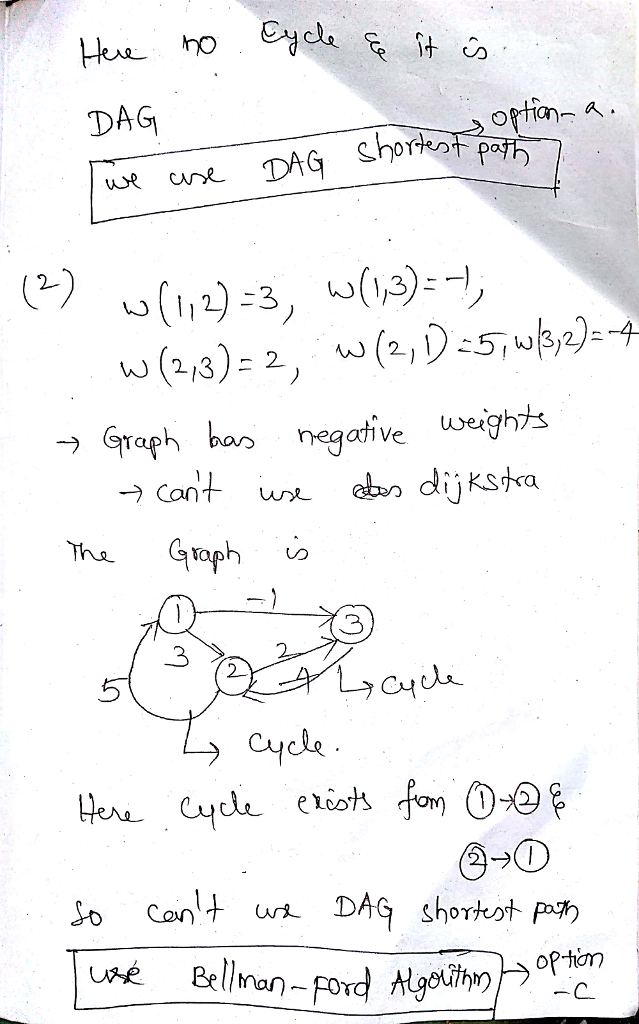 Here no Cycle & it is
DAG
→ option-a.
we use DAG shortest path
(2) w(1,2)=3, w(1,3)=-1,
w(2,3)=2, w(2,1)=5, w(3,2)=-4
→ Graph has negative weights
→ can't use dijkstra
The Graph is
1 -1 3
3 2 2
5 -4 ↳ cycle
↳ cycle.
Here cycle exists from ①→② &
②→①
So can't use DAG shortest path
use Bellman-Ford Algorithm → option
-C